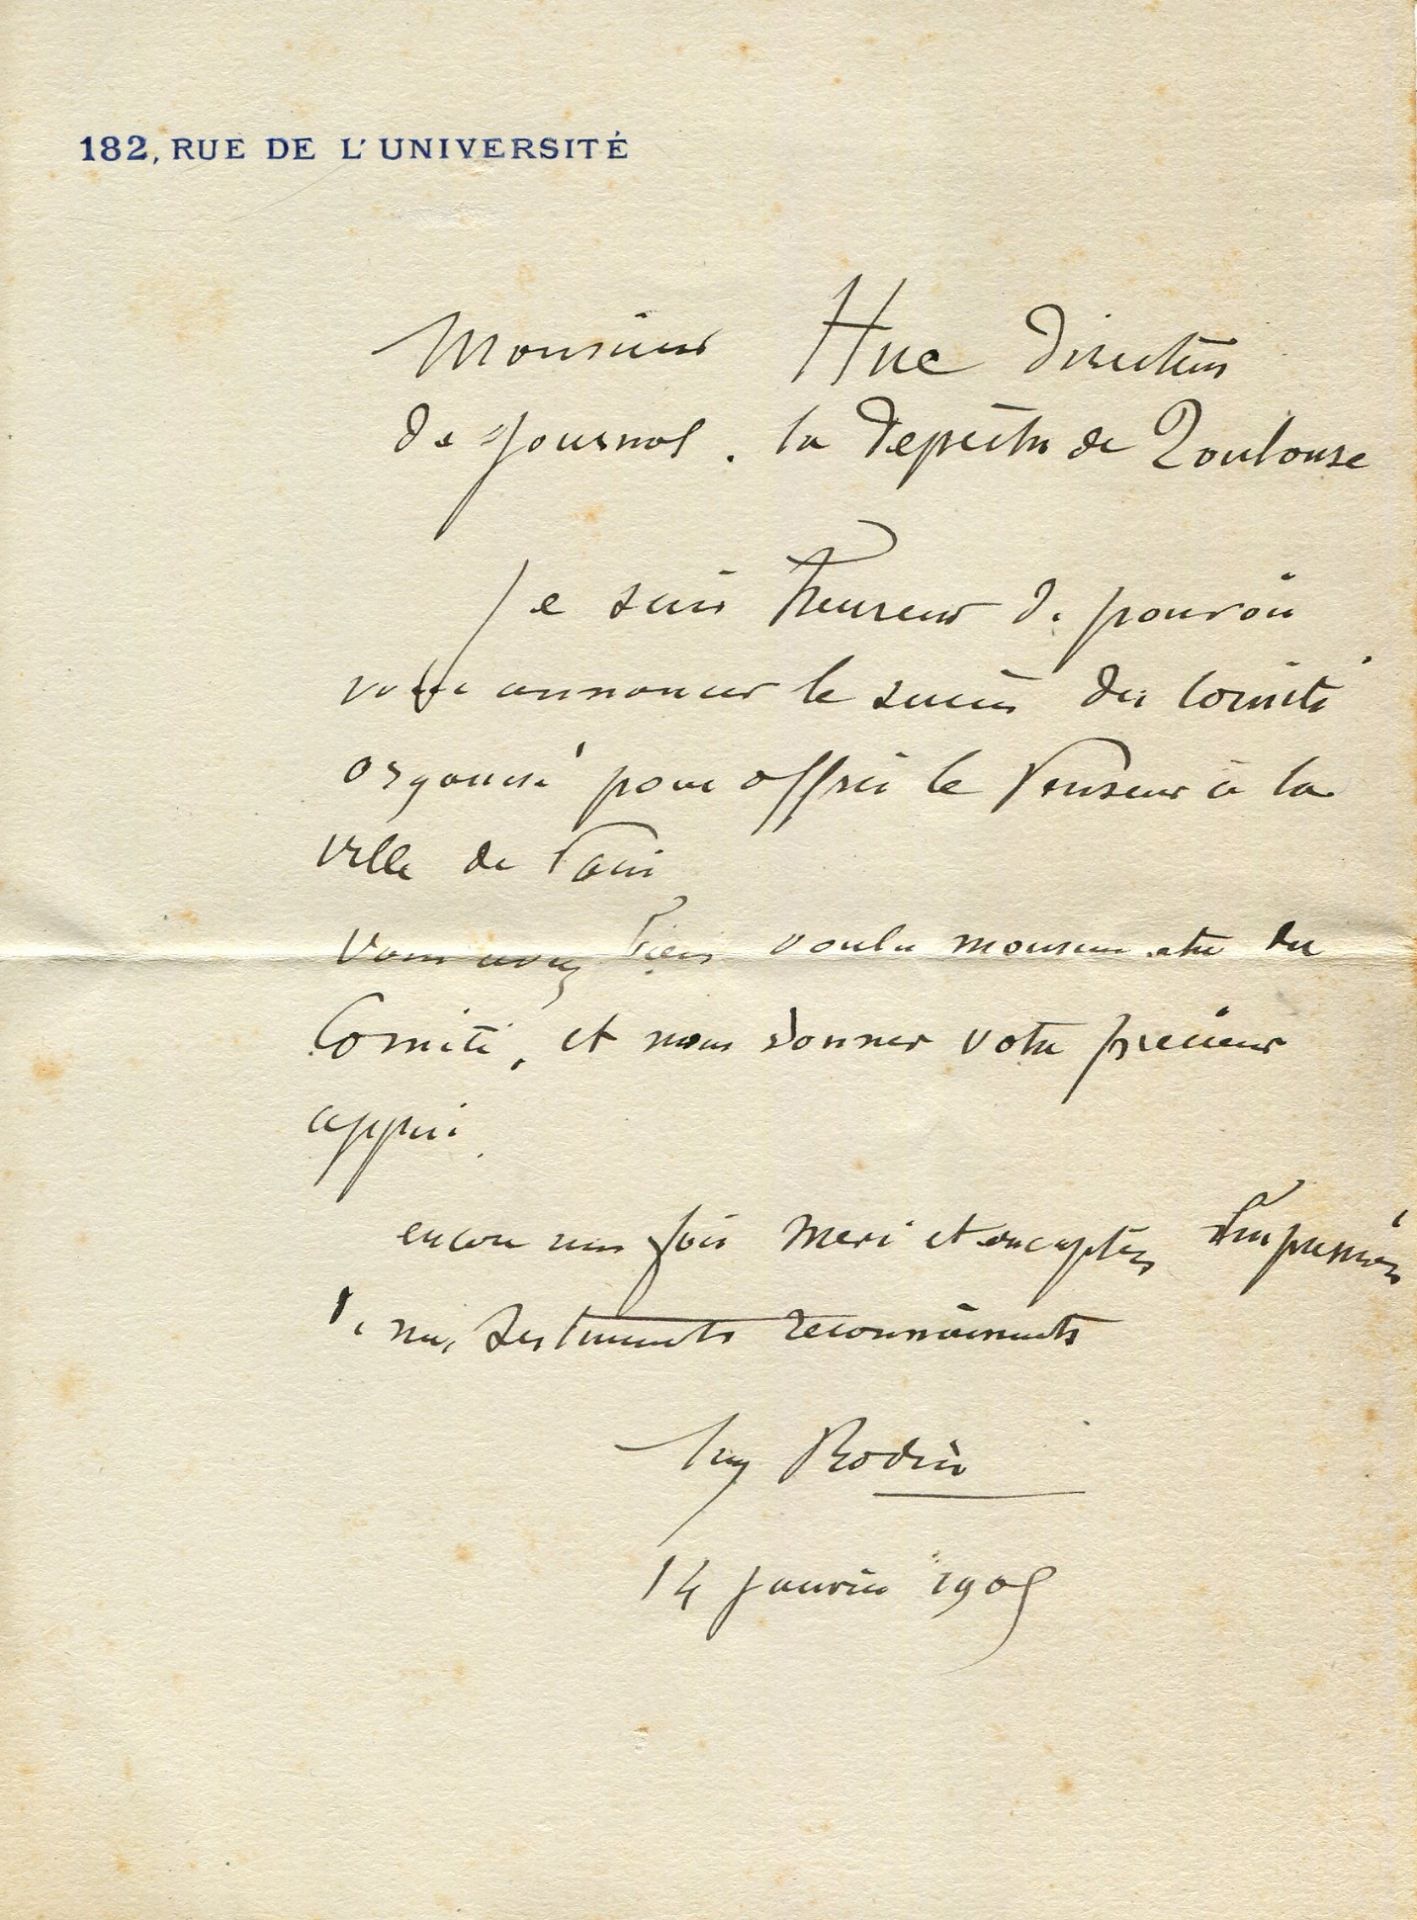 182, RUE DE L'UNIVERSITÉ
Monsieur Huc directeur
de journal. la depêche de Toulouse
Je suis heureux de pouvoir
vous annoncer le succès du Comité
organisé pour offrir le Penseur à la
ville de Paris
Vous avez bien voulu monsieur etre du
Comité, et nous donner votre précieux
appui.
encore une fois merci et acceptez l'expression
de mes sentiments reconnaissants
Aug Rodin
14 janvier 1905